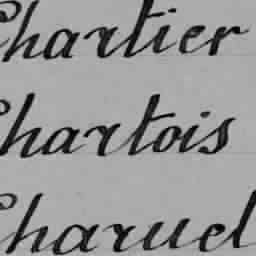 Chartier
Chartois
Charuel